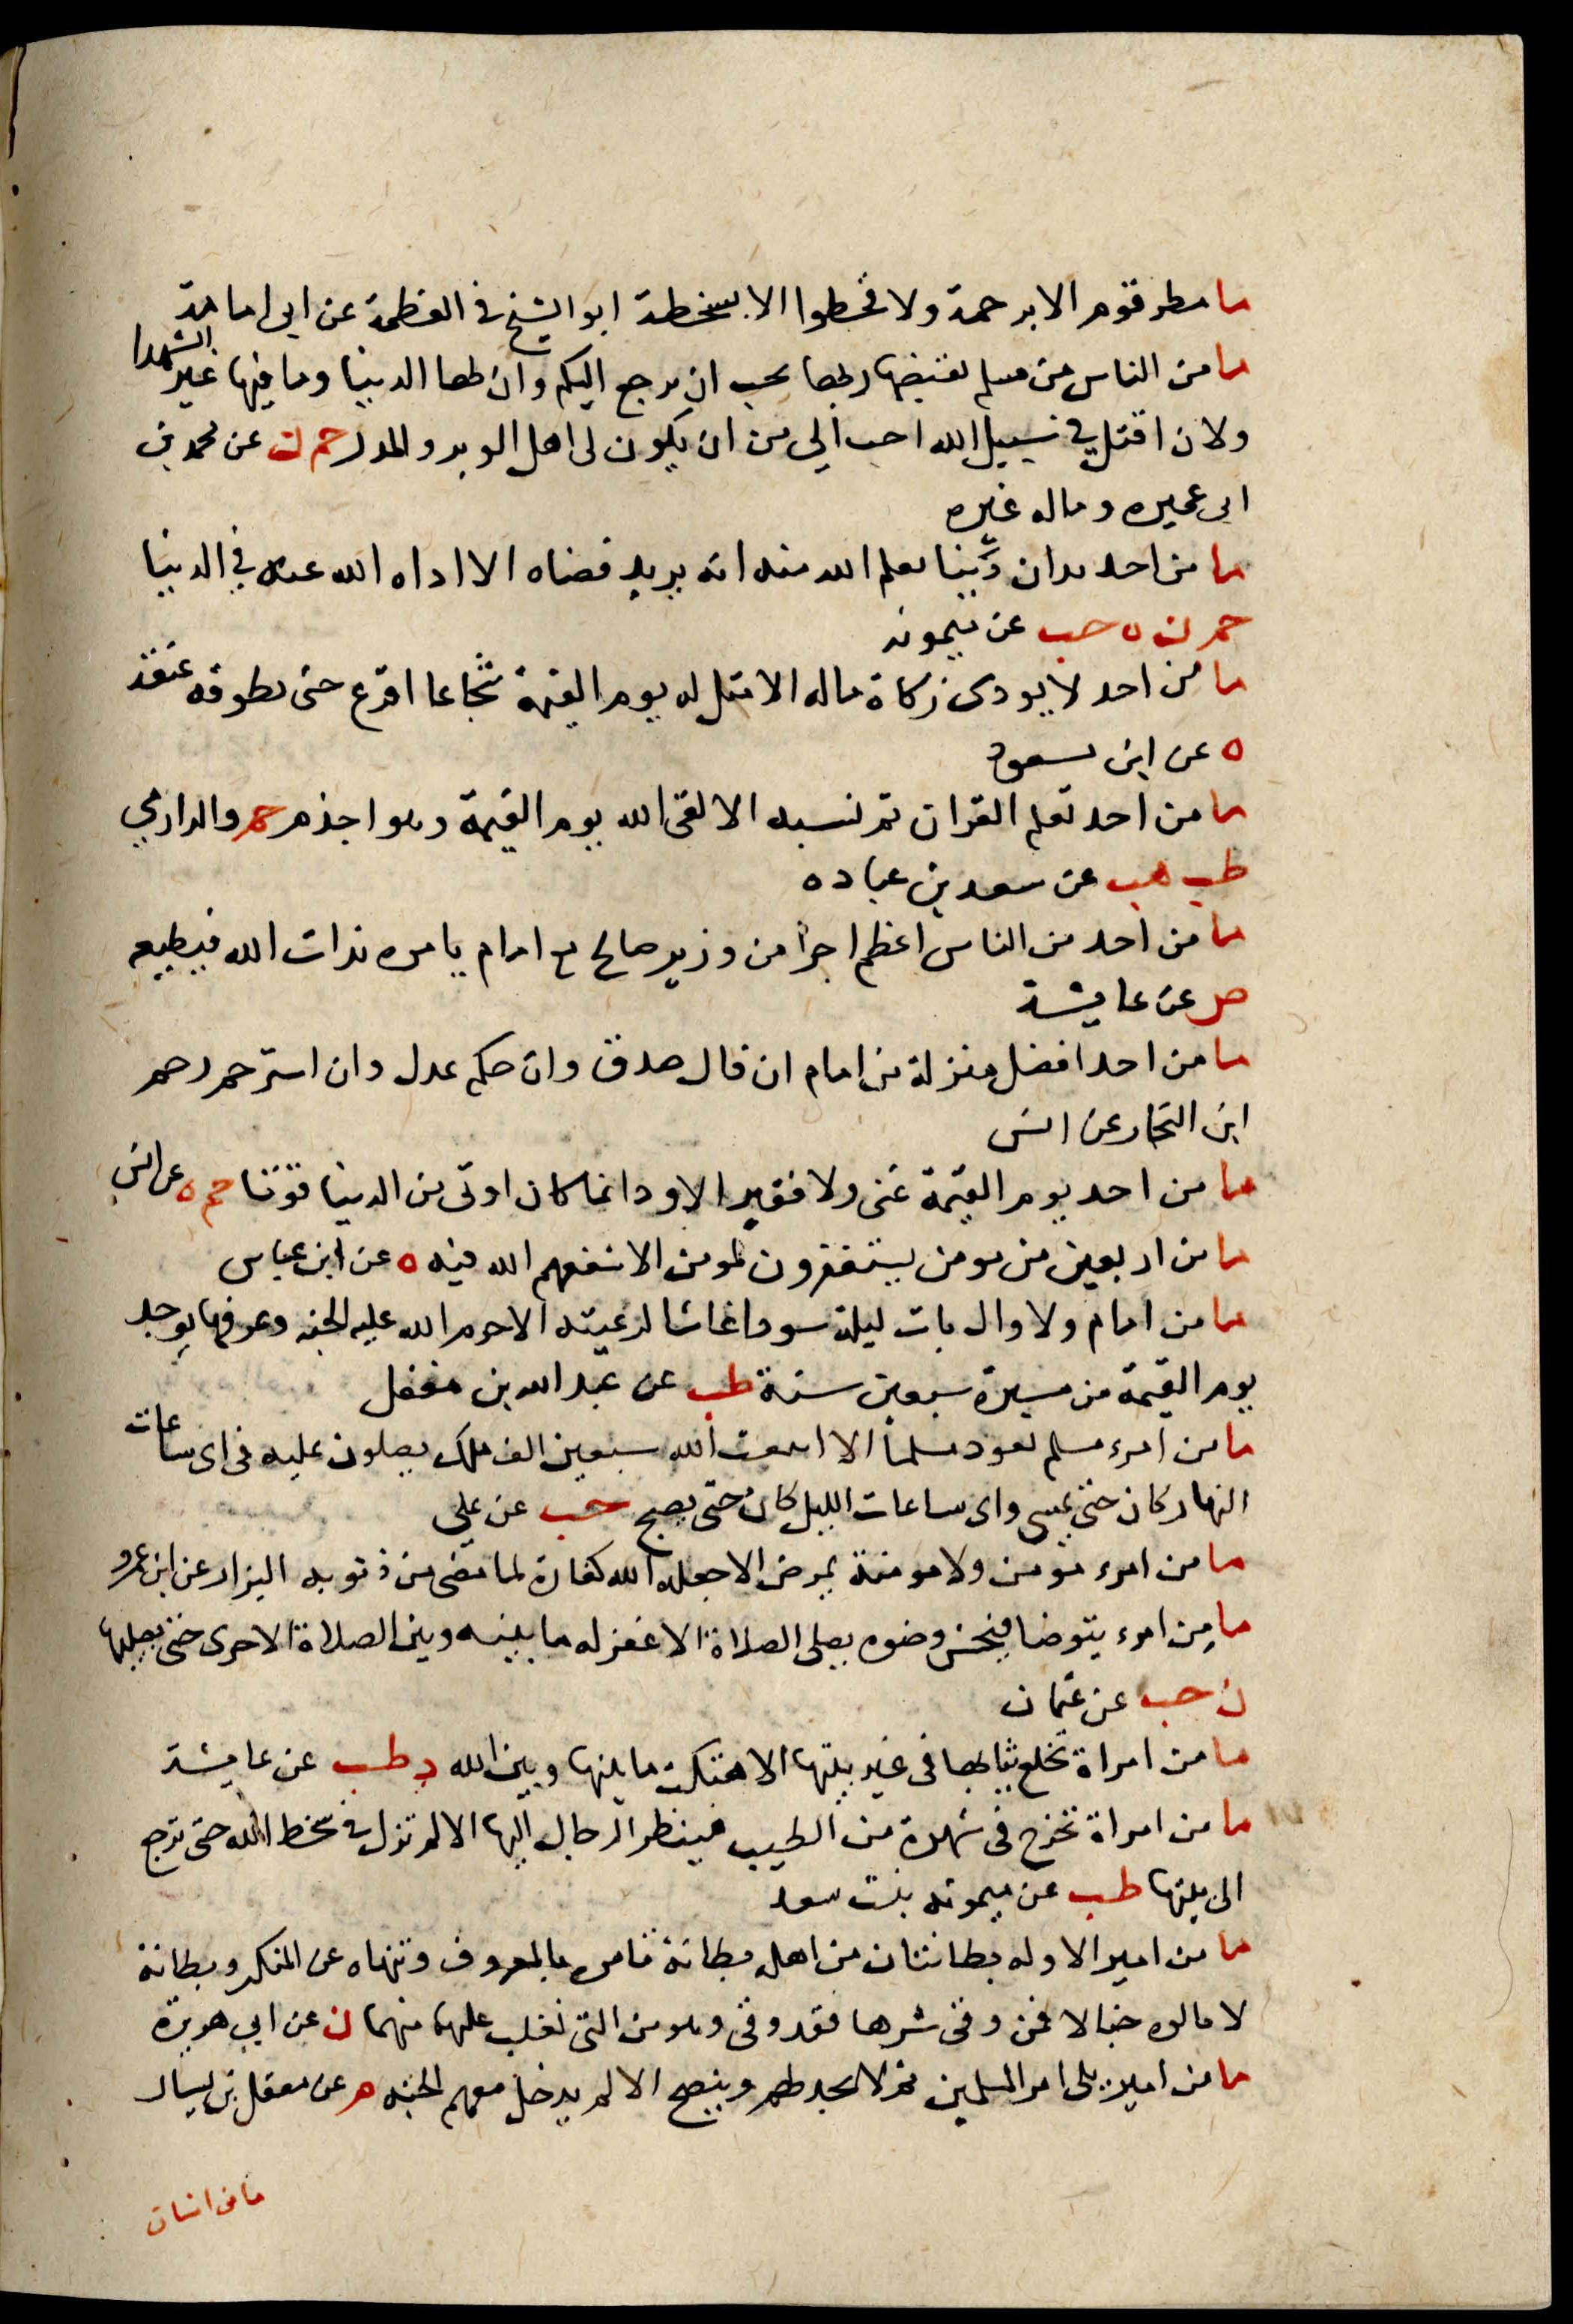 ما مطر قوم الا برحمة ولا قحطوا الا بسخطة ابو الشيخ في العظمة عن ابى امامة
ما من الناس من مسلم يقبضها ربها يحب ان يرجع اليكم وان لها الدنيا وما فيها غير الشهدا
ولان اقتل في سبيل الله احب الي من ان يكون لى اهل الوبر والمدر حم ن عن محمد بن
ابى عميره وماله غيره
ما من احد يدان دَينا يعلم الله منه انه يريد قضاه الا اداه الله عنه في الدنيا
حم ن ه حب عن ميمونه
ما من احد لا يودى زكاة ماله الا مثل له يوم القيمة شجاعا اقرع حتى يطوقه عنقه
ه عن ابن مسعود
ما من احد تعلم القران ثم نسيه الا لقى الله يوم القيمة وهو اجذم حم والدارمي
طب هب عن سعد بن عباده
ما من احد من الناس اعظم اجرا من وزير صالح مع امام يامره بذات الله فيطيعه
ص عن عايشة
ما من احد افضل منزلة من امام ان قال صدق وان حكم عدل وان استرحم رحم
ابن النجار عن انس
ما من احد يوم القيمة غنى ولا فقير الا ود انما كان اوتى من الدنيا قوتا حم ه عن انس
ما من اربعين من مومن يستغفرون لمومن الا شفعهم الله فيه ه عن ابن عباس
ما من امام ولا وال بات ليلة سودا غاشا لرعيته الا حرم الله عليه الجنه وعرفها يوجد
يوم القيمة من مسيرة سبعين سنة طب عن عبد الله بن مغفل
ما من امرء مسلم يعود مسلما الا ابتعث الله سبعين الف ملك يصلون عليه فى اى ساعات
النهار كان حتى يمسى واى ساعات الليل كان حتى يصبح حب عن علي
ما من امرء مومن ولا مومنة يمرض الا جعله الله كفارة لما مضى من ذنوبه البزار عن ابن عمرو
ما من امرء يتوضا فيحسن وضوه يصلى الصلاة الا غفر له ما بينه وبين الصلاة الاخرى حتى يصليها
ن حب عن عثمان
ما من امراة تخلع ثيابها فى غير بيتها الا هتكت ما بينها وبين الله د طب عن عايشة
ما من امراة تخرج فى شهرة من الطيب فينظر الرجال اليها الا لم تزل فى سخط الله حتى ترجع
الى بيتها طب عن ميمونه بنت سعد
ما من امير الا وله بطانتان من اهله بطانة تامره بالمعروف وتنهاه عن المنكر وبطانة
لا تالوه خبالا فمن وقى شرها فقد وقى وهو من التى تغلب عليه منهما ن عن ابي هريرة
ما من امير يلى امر المسلمين ثم لا يجهد لهم وينصح الا لم يدخل معهم الجنه م عن معقل بن يسار
ما من انسان